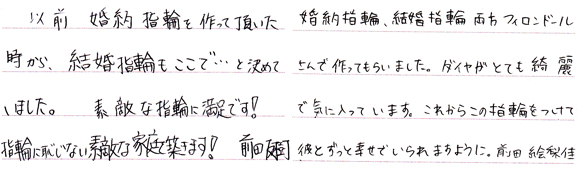 以前 婚約指輪を作って頂いた
時から、結婚指輪もここで…と決めて
いました。 素敵な指輪に満足です!
指輪に恥じない素敵な家庭を築きます! 前田
婚約指輪、結婚指輪両方フィロンドール
さんで作ってもらいました。ダイヤがとても綺麗
で気に入っています。これからこの指輪をつけて
彼とずっと幸せでいられますように。前田 絵梨佳